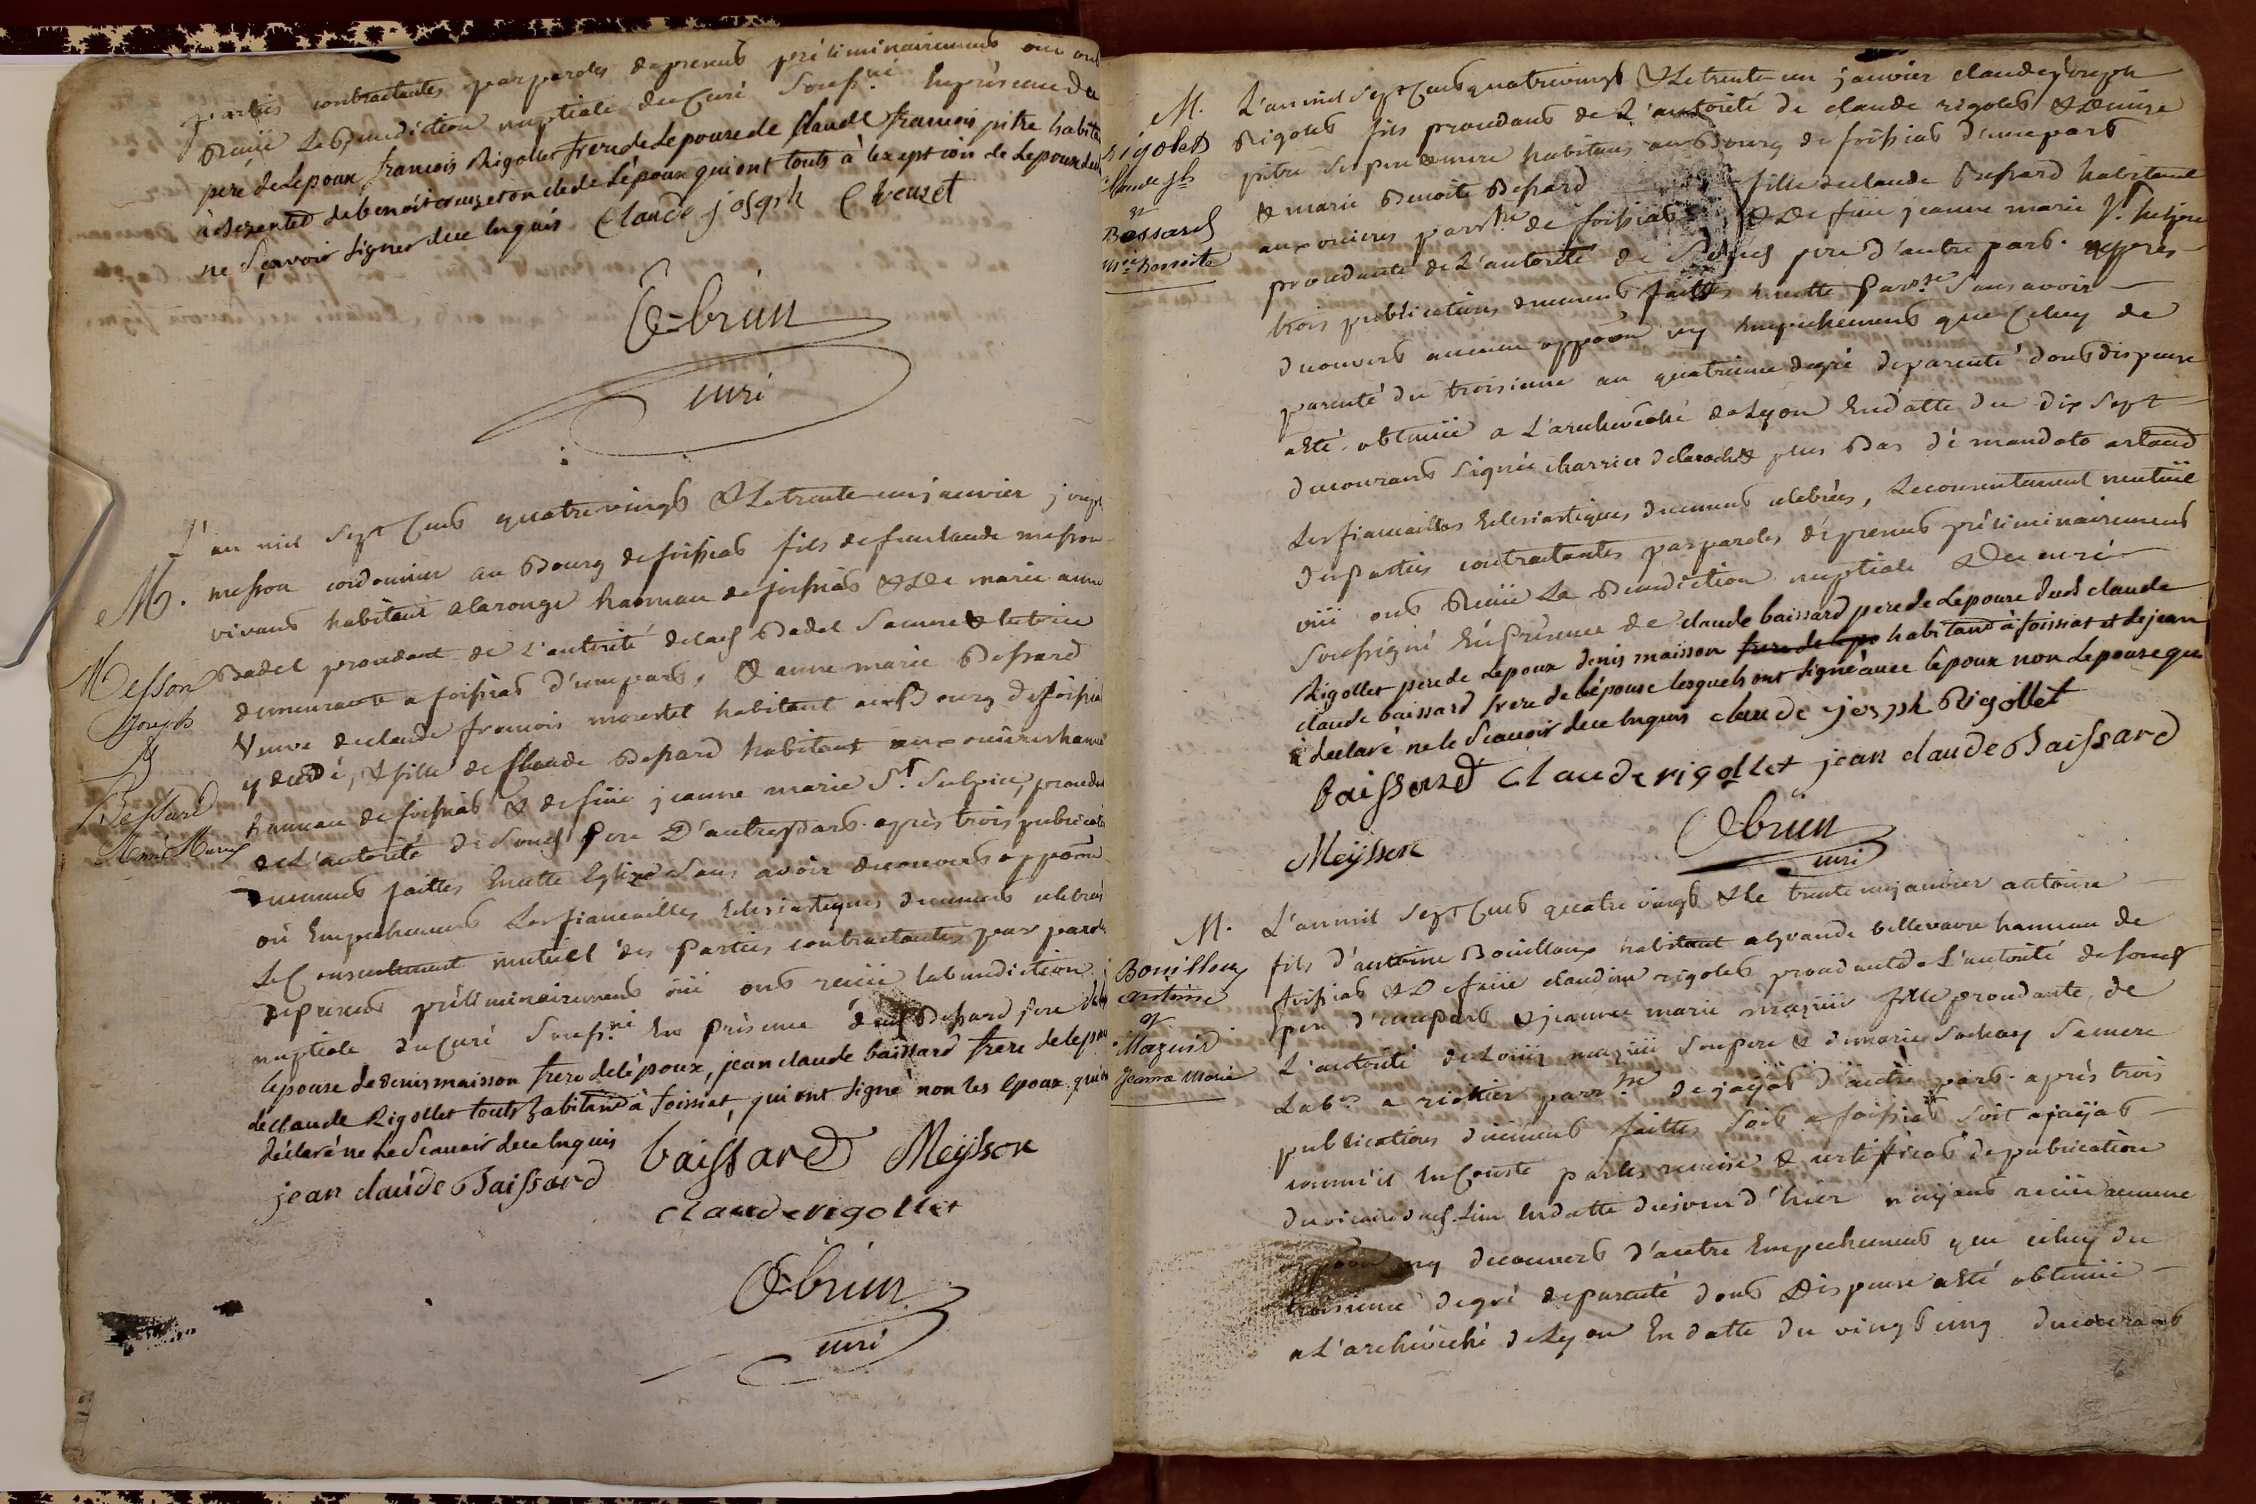 parties contractantes par paroles de presents préliminairement oui ont
Reciie La Benediction nuptiale du Curé Souss.né En présence du
pere de Lepoux, francois Rigollet frere de Lepouse de Claude francois pitre habita
ne Scavoir Signer de ce Enquis Claude joseph Creuzet
Cebrun
curé
L'an mil Sept Cent quatrevingt & Le trente un janvier joseph
M. messon cordonnier au Bourg de foissiat fils de feu claude messon
vivant habitant a laronge hameau de foissiat & De marie anne
Messon Badel procedant de L'autorité de lad Badel Sa mere & tutrice
Joseph demeurante a foissiat d'une part, & anne marie Bessard
& Veuve de claude francois morestel habitant au Bourg de foissia
y decedé, & fille de Claude Bessard habitant aux orcieres hame
Bessard hameau de foissiat & de feüe jeanne marie St. Sulpice, procedan
Anne Marie de L'autorité de Sond. Pere D'autre part. après trois publicat
duement faittes En cette Eglise Sans avoir decouvert oppoon
oü Empechement Les fiancailles Eclesiastiques duement celebrée
Le Consentement mutuel des Parties contractantes par parole
de present préliminairement oüi ont reciie la benediction
nuptiale du Curé Souss.né En présence dud Bessard pere de
lepouse de denis maisson frere de lépoux, jean claude baissard frere de lepou
de claude Rigollet touts habitand à foissiat, qui ont signé non les epoux qui on
déclaré ne Le Scavoir de ce Enquis
baissard Meysson
jean claude Baissard
claude rigollet
Cebrun
curé
M. L'an mil Sept Cent quatrevingt & Le trente un janvier claude joseph
Rigolet Rigolet fils procedant de L'autorité de claude rigolet & Denise
Claude Jph pitre Ses pere & mere habitans au Bourg de foissiat d'une part
& & marie Benoite Bessard fille de claude Bessard habitant
Bessard aux orcieres parr.sse de foissiat & De feüe jeanne marie St. Sulpice
Mie. Benoite procedante de L'autorité de Sond. pere d'autre part. apres
trois publications duement faittes En cette Parr.sse Sans avoir
decouvert aucune oppoon ny Empechement que Celuy de
parenté du troisieme au quatrieme degré de parenté dont dispense
a Eté obtenüe a L'archevêché de Lyon En datte du dix Sept
du courant Signée charrier delaroche & plus Bas de mandato artaud
Les fiancailles Eclesiastiques duement celebrées, Le consentement mutüel
des Parties contractantes par paroles de present préliminairement
oüi ont Reciie La Benediction nuptiale Du curé
Soussigné En Présence de claude baissard pere de Lepouse dud claude
Rigollet pere de Lepoux denis maisson frere de lepo habitand à foissiat et de jean
claude baissard frere de lépouse lesquels ont signé avec lepoux non Lepouse qui
a declaré ne le Scavoir de ce Enquis claude joseph Rigollet
baissard claude rigollet jean claude Baissard
Cebrun
Meysson curé
M. L'an mil Sept Cent quatre vingt & le trente un janvier antoine
Bouilloux fils d'antoine Bouilloux habitant a grande vellevavre hameau de
antoine foissiat & De feüe claudine rigolet procedant de L'autorité de Sond
& pere d'une part & jeanne marie mazuir fille procedante de
Mazuir L'autorité de Loüis mazuir Son pere & de marie Sochay Sa mere
Jeanne Marie Labrs a riottier parr.sse de jayat d'autre part. après trois
publications duement faittes Soit a foissiat Soit a jayat
comme il En Conste par les remise & certifficat de publication
du vicaire dud Lieu En datte du jour d'hier n'ayant reciie aucune
oppoon ny decouvert d'autre Empechement que celuy du
troisieme degré de parenté dont Dispense a Eté obtenüe
a L'archevêché de Lyon En datte du vingt cinq du courant
6